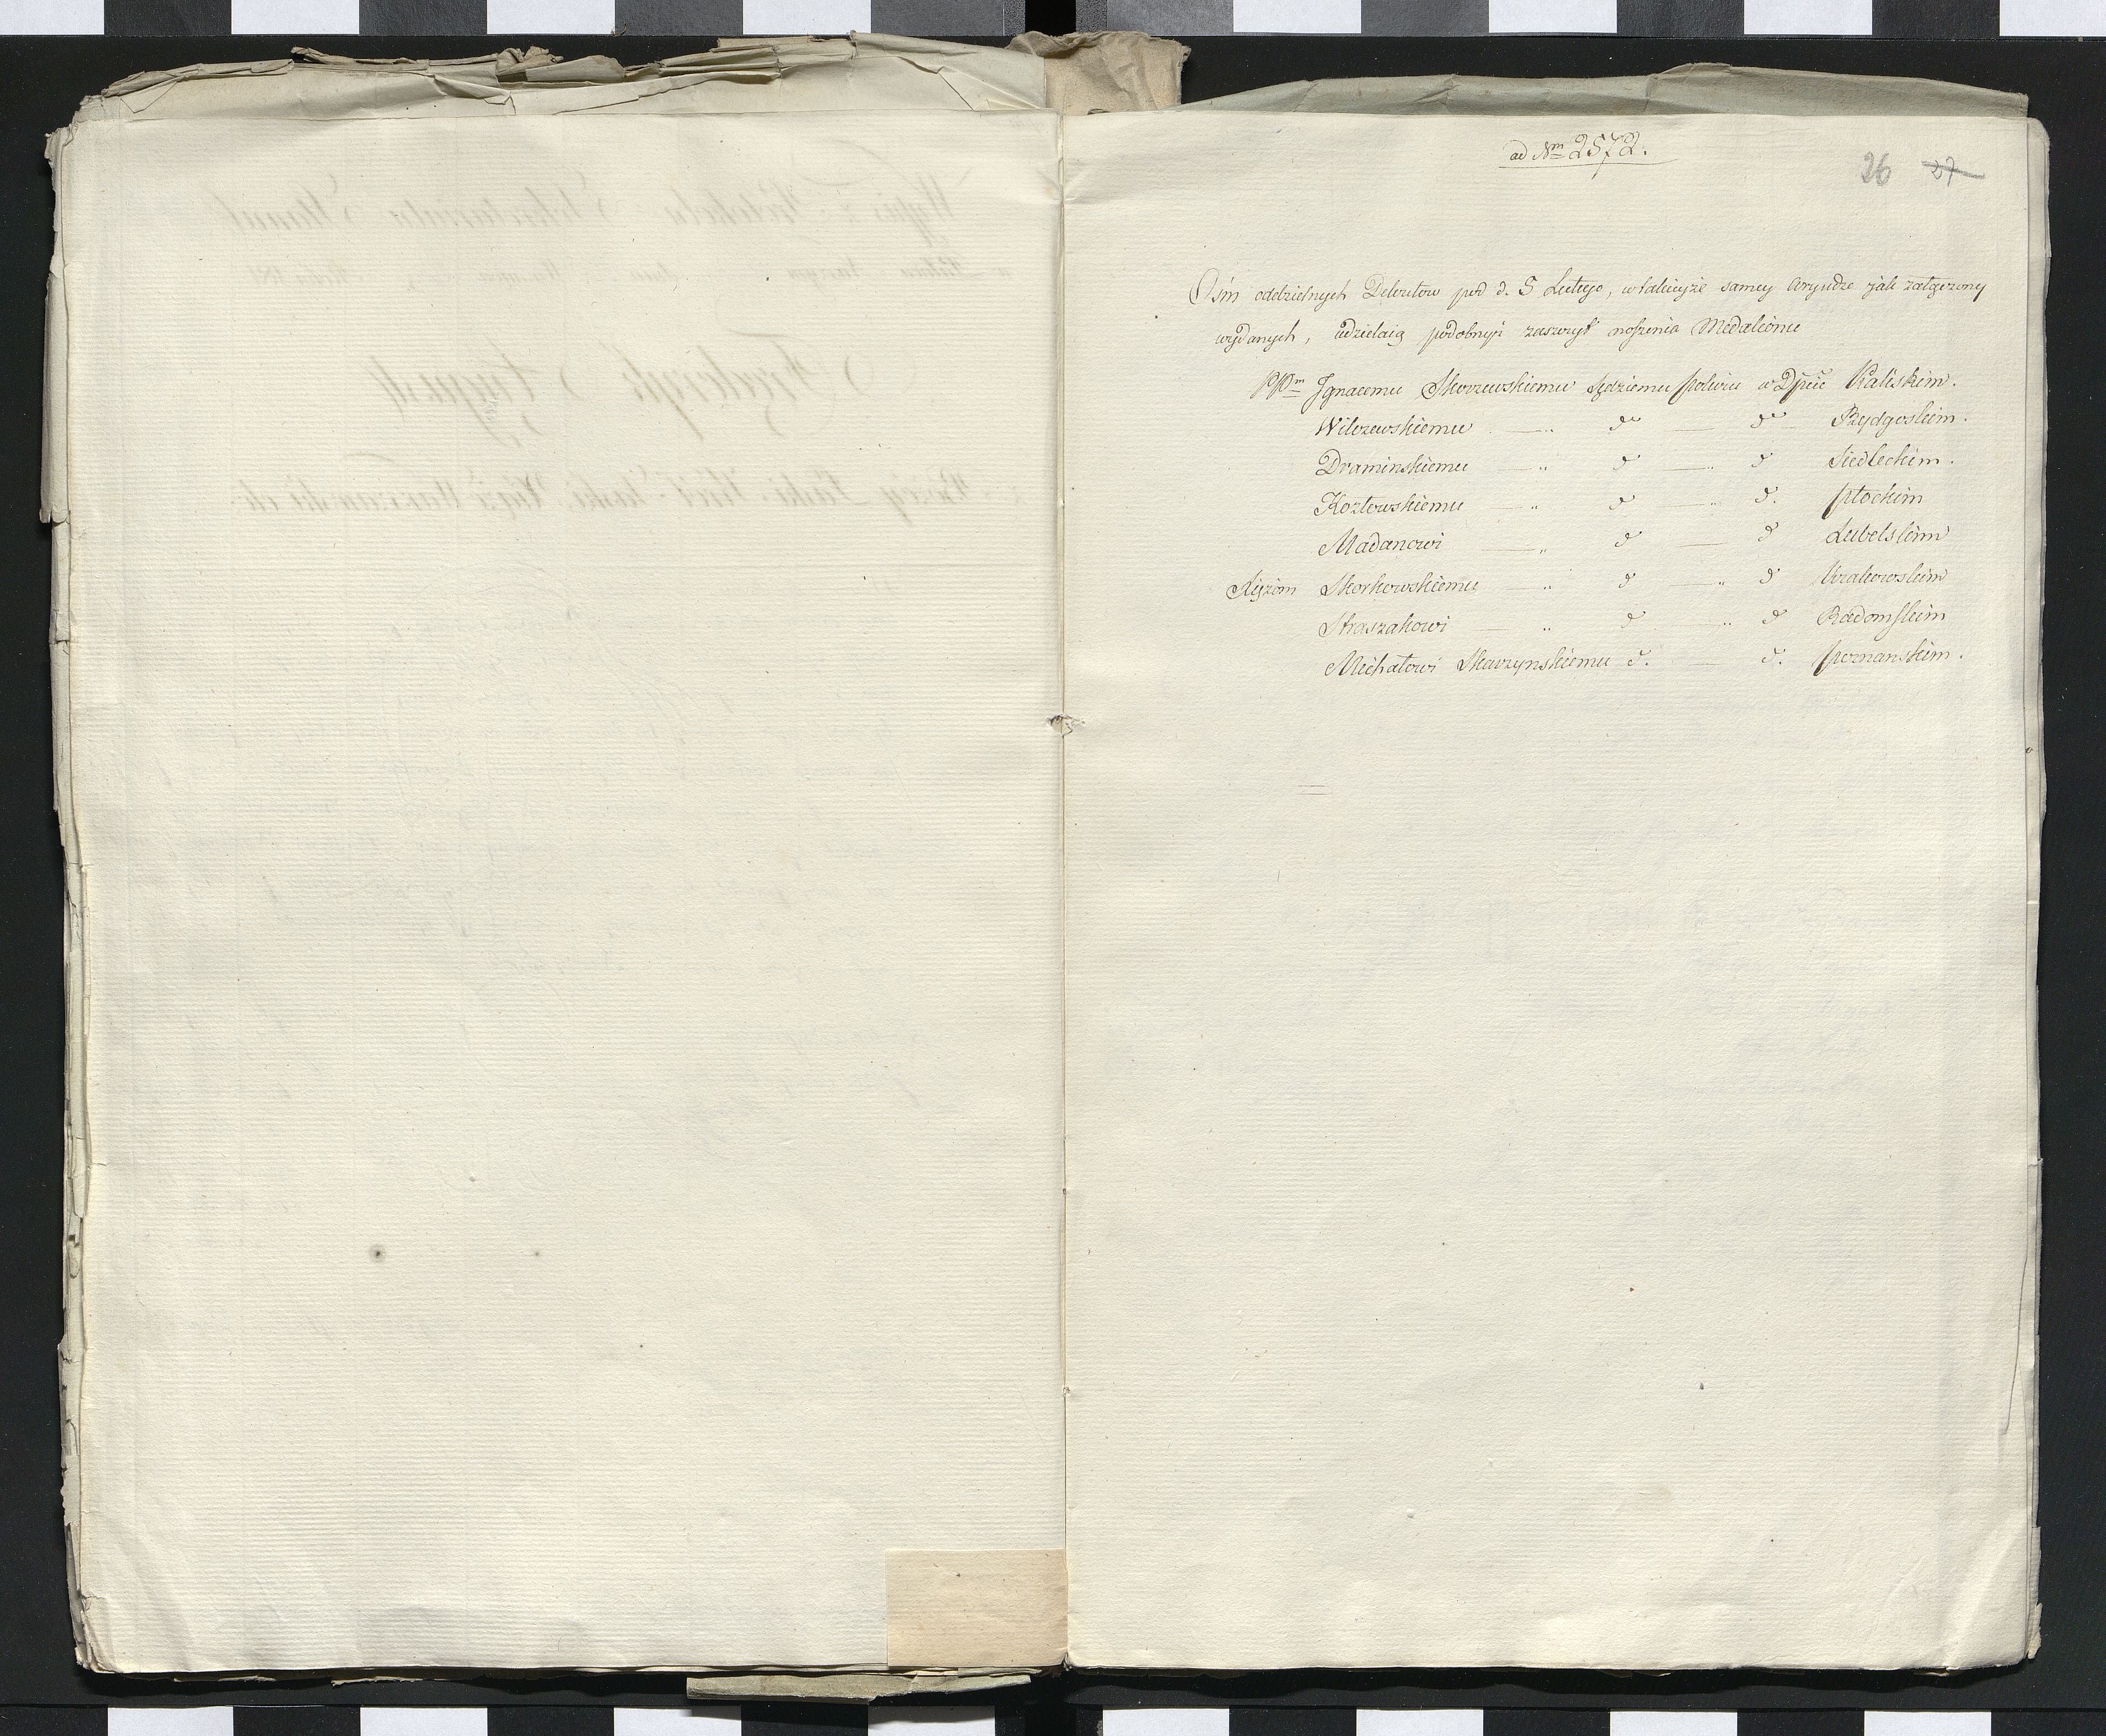 ad Nrm 2572.
26 27
Ośm oddzielnych Dekretow pod d. 5 Lutego, w takieyże samey Osnowie jak załączony
wydanych, udzielaią podobnyż zaszczyt noszenia Medalionu
PPm Ignacemu Skorzewskiemu Sędziemu Pokoiu w Dpcie Kaliskim.
Wilczewskiemu — " do — do Bydgoskim.
Draminskiemu — " d — " d Siedleckim.
Kozłowskiemu — " d — " d. Płockim
Madanowi — " d — d Lubelskim
Xiężom Skorkowskiemu — " d " d Krakowskim
Straszakowi — " d " d Radomskim
Michałowi Skarzynskiemu d. — d. Poznanskim.